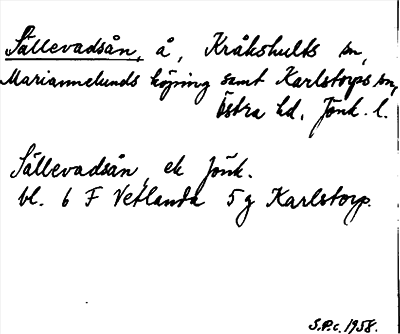 Sällevadsån, å, Kråkshults sn,
Mariannelunds köping samt Karlstorps sn,
Östra hd. Jönk. l.
Sällevadsån, ek Jönk.
bl. 6 F Vetlanda 5 g Karlstorp.
S.P.c. 1958.